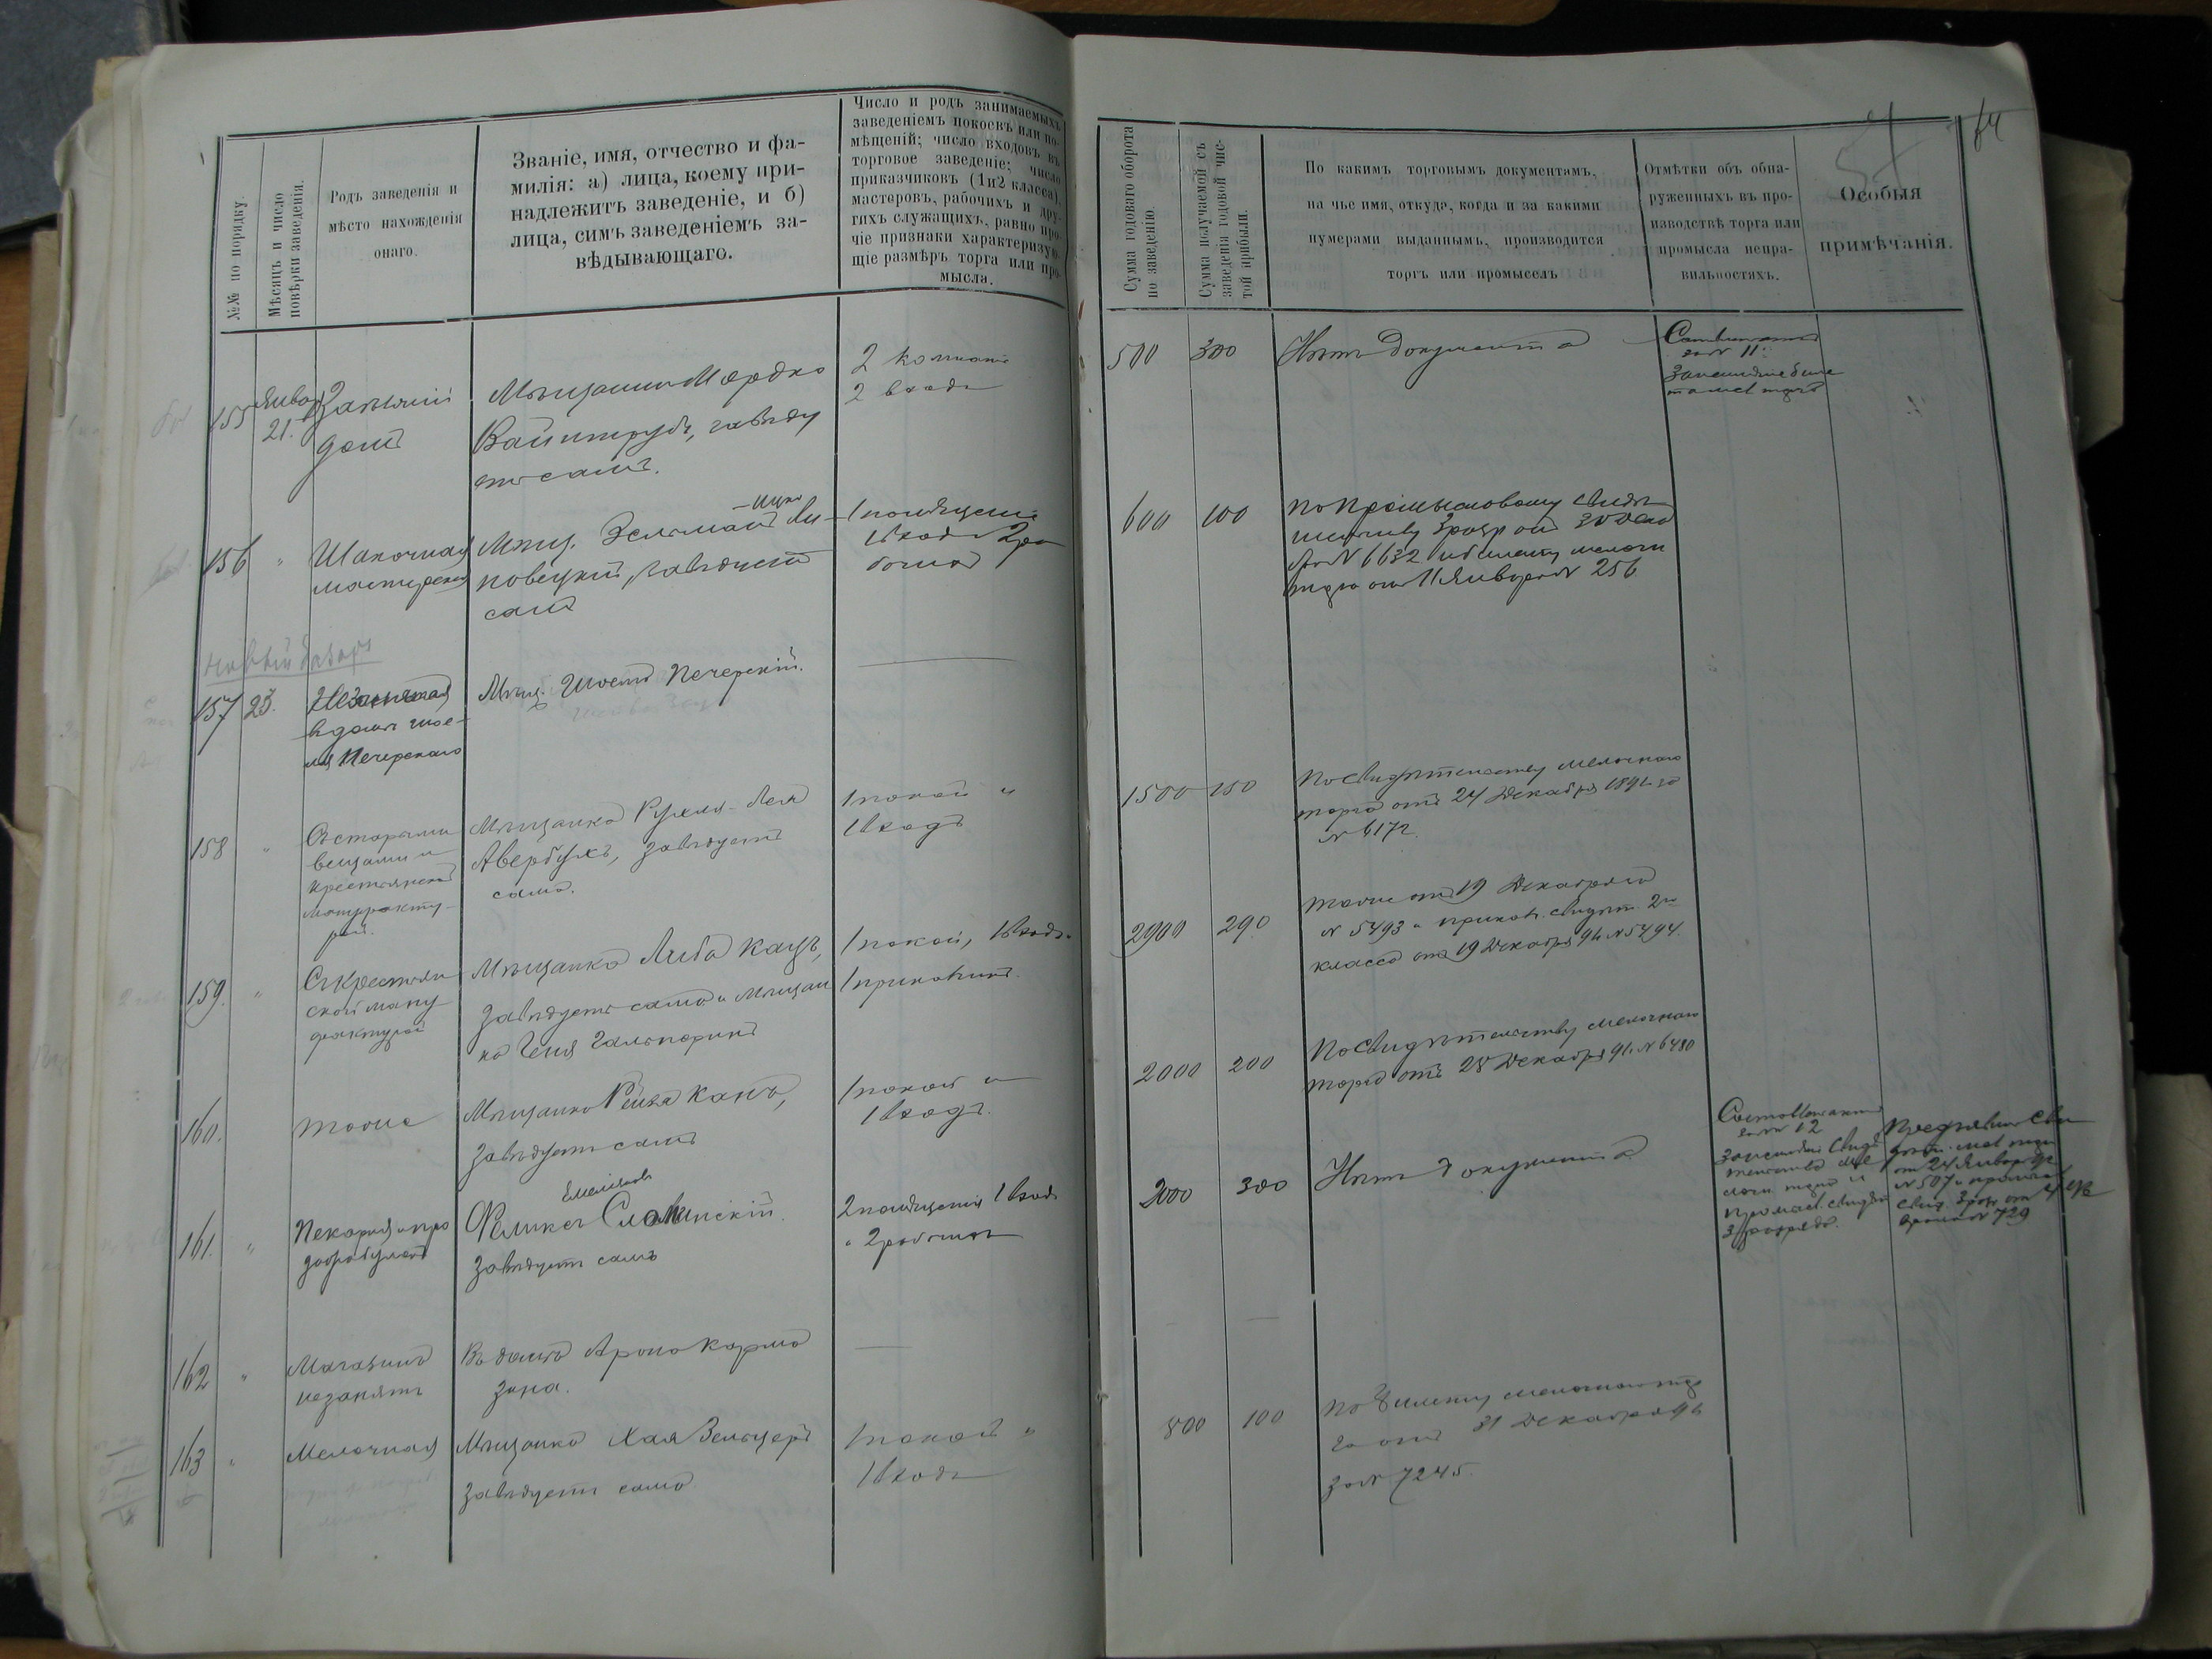 №№ по порядку.
Мѣсяцъ и число
повѣрки заведенія.
Родъ заведенія и
мѣсто нахожденія
онаго.
Званіе, имя, отчество и фа-
милія: а) лица, коему при-
надлежитъ заведеніе, и б)
лица, симъ заведеніемъ за-
вѣдывающаго.
Число и родъ занимаемыхъ
заведеніемъ покоевъ или по-
мѣщеній; число входовъ въ
торговое заведеніе; число
приказчиковъ (1 и 2 класса),
мастеровъ, рабочихъ и дру-
гихъ служащихъ, равно про-
чіе признаки характеризую-
щіе размѣръ торга или про-
мысла.
155
Январ
21.
Заѣзжій
домъ
Мѣщанинъ Мордко
Вайнтрубъ, завѣду
етъ самъ.
2 комнаты
2 входа
156 "
Шапочная
мастерская
Мѣщ. Зельманъ
самъ
1 помѣщеніе
1 входъ 2 ра
бочихъ
Новый базаръ
157 23.
Незанятая
въ домѣ Шое-
ля Печерскаго
Мѣщ. Шоель Печерскій.
158 "
Съ старыми
вещами и
крестьянской
мануфакту-
рой.
Мѣщанка Рухля-Лея
Авербухъ, завѣдуетъ
сама.
1 покой и
1 входъ
159. "
Съ крестьян
ской ману-
фактурой
Мѣщанка Либа Кацъ,
завѣдуетъ сама и мѣщан
ка Геня Гальперинъ
1 покой, 1 входъ
1 приказчикъ.
160.
тоже
Мѣщанка Рейза Канъ,
завѣдуетъ самъ
1 покой и
1 входъ.
161. "
Пекарня и про
дажа булокъ
Феликсъ Славинскій.
завѣдуетъ самъ
2 помѣщенія 1 входъ
и 2 рабочихъ
162 "
Магазинъ
незанятъ
Въ домѣ Арона Карша
зона.
163 "
Мелочная
Мѣщанка Хая Зельцеръ
завѣдуетъ сама
1 покой и
1 входъ
Сумма годоваго оборота
по заведенію.
Сумма получаемой съ
заведенія годовой чис-
той прибыли.
По какимъ торговымъ документамъ,
на чье имя, откуда, когда и за какими
нумерами выданнымъ, производится
торгъ или промыселъ
Отмѣтки объ обна-
руженныхъ въ про-
изводствѣ торга или
промысла непра-
вильностяхъ.
Особыя
примѣчанія.
500 300
Нѣтъ документа
за № 11
600 100
По промысловому свидѣ
тельству 3 разр отъ 30 Дека
бря № 6632 и билету мелочн
торга отъ 11 Января № 256
1500 150
По свидѣтельству мелочнаго
торга отъ 24 Декабря 1891 за
№ 6172.
2900 290
тоже отъ 19 Декабря за
№ 5493 и приказ. свидѣт. 2го
класса отъ 19 Декабря 91 № 5494.
2000 200
По свидѣтельству мелочнаго
торга отъ 28 Декабря 91 № 6480
2000 300
Нѣтъ документа.
Составленъ актъ
за № 12
3 разряда.
Предъявилъ сви
дѣт. мел торг
от 24 Января 92
№ 507 и промысл
свид. 3 разр. от
Января № 729
800 100
По билету мелочнаго тор
га отъ 31 Декабря 91
за № 7245.